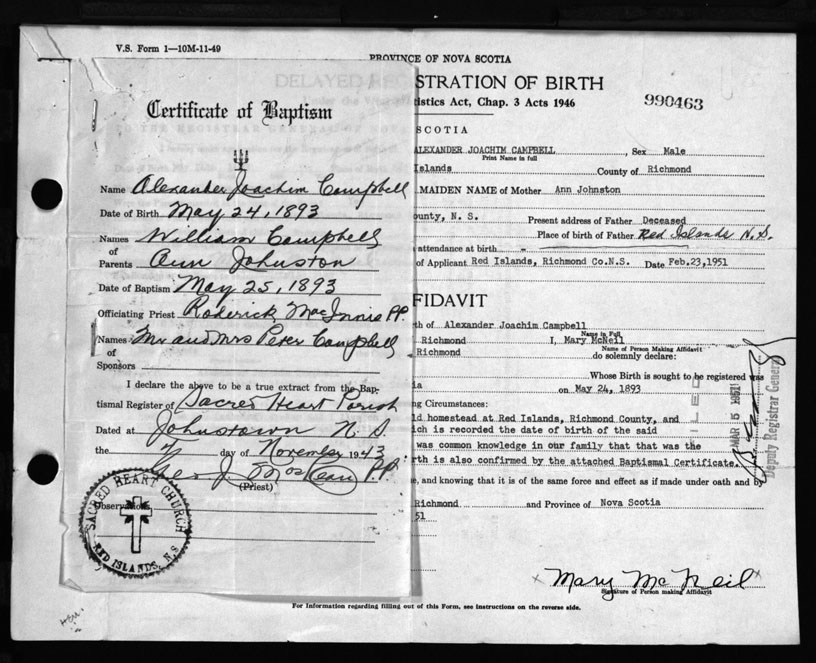 V.S. Form 1—10M-11-49
PROVINCE OF NOVA SCOTIA
DELAYED REGISTRATION OF BIRTH
istics Act, Chap. 3 Acts 1946
990463
SCOTIA
ALEXANDER JOACHIM CAMPBELL, Sex Male
Print Name in full
Islands County of Richmond
MAIDEN NAME of Mother Ann Johnston
ounty, N. S. Present address of Father Deceased
Place of birth of Father Red Islands N.S.
attendance at birth -
of Applicant Red Islands, Richmond Co.N.S. Date Feb.23,1951
FFIDAVIT
th of Alexander Joachim Campbell
Name in Full
Richmond I, Mary McNeil
Name of Person Making Affidavit
Richmond do solemnly declare:
Whose Birth is sought to be registered was
ia on May 24, 1893
ng Circumstances:
ld homestead at Red Islands, Richmond County, and
ich is recorded the date of birth of the said
was common knowledge in our family that that was the
rth is also confirmed by the attached Baptismal Certificate.
e, and knowing that it is of the same force and effect as if made under oath and by
Richmond and Province of Nova Scotia
51
Mary McNeil
Signature of Person making Affidavit
For Information regarding filling out of this Form, see Instructions on the reverse side.
FILED
MAR 5 1951
Deputy Registrar General
Certificate of Baptism
Name Alexander Joachim Campbell
Date of Birth May 24, 1893
Names William Campbell
of
Parents Ann Johnston
Date of Baptism May 25, 1893
Officiating Priest Roderick MacInnis P.P.
Names Mr and Mrs Peter Campbell
of
Sponsors
I declare the above to be a true extract from the Bap-
tismal Register of Sacred Heart Parish
Dated at Johnstown N.S.
the day of November 1943
Geo. J. P.P.
(Priest)
Observations
SACRED HEART CHURCH
RED ISLANDS, N.S.